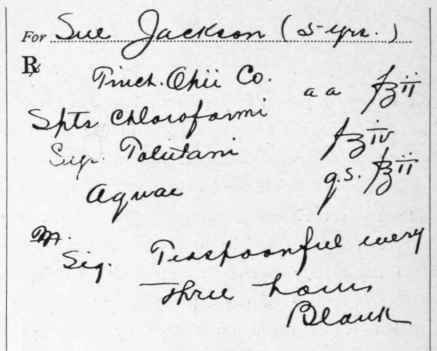 For Sue Jackson (5 yrs.)
℞
Tinct. Opii Co.
Spts Chloroformi aa f℥ii
Syr. Tolutani f℥iv
Aquae q.s. f℥ii
M.
Sig. Teaspoonful every
three hours
Blank